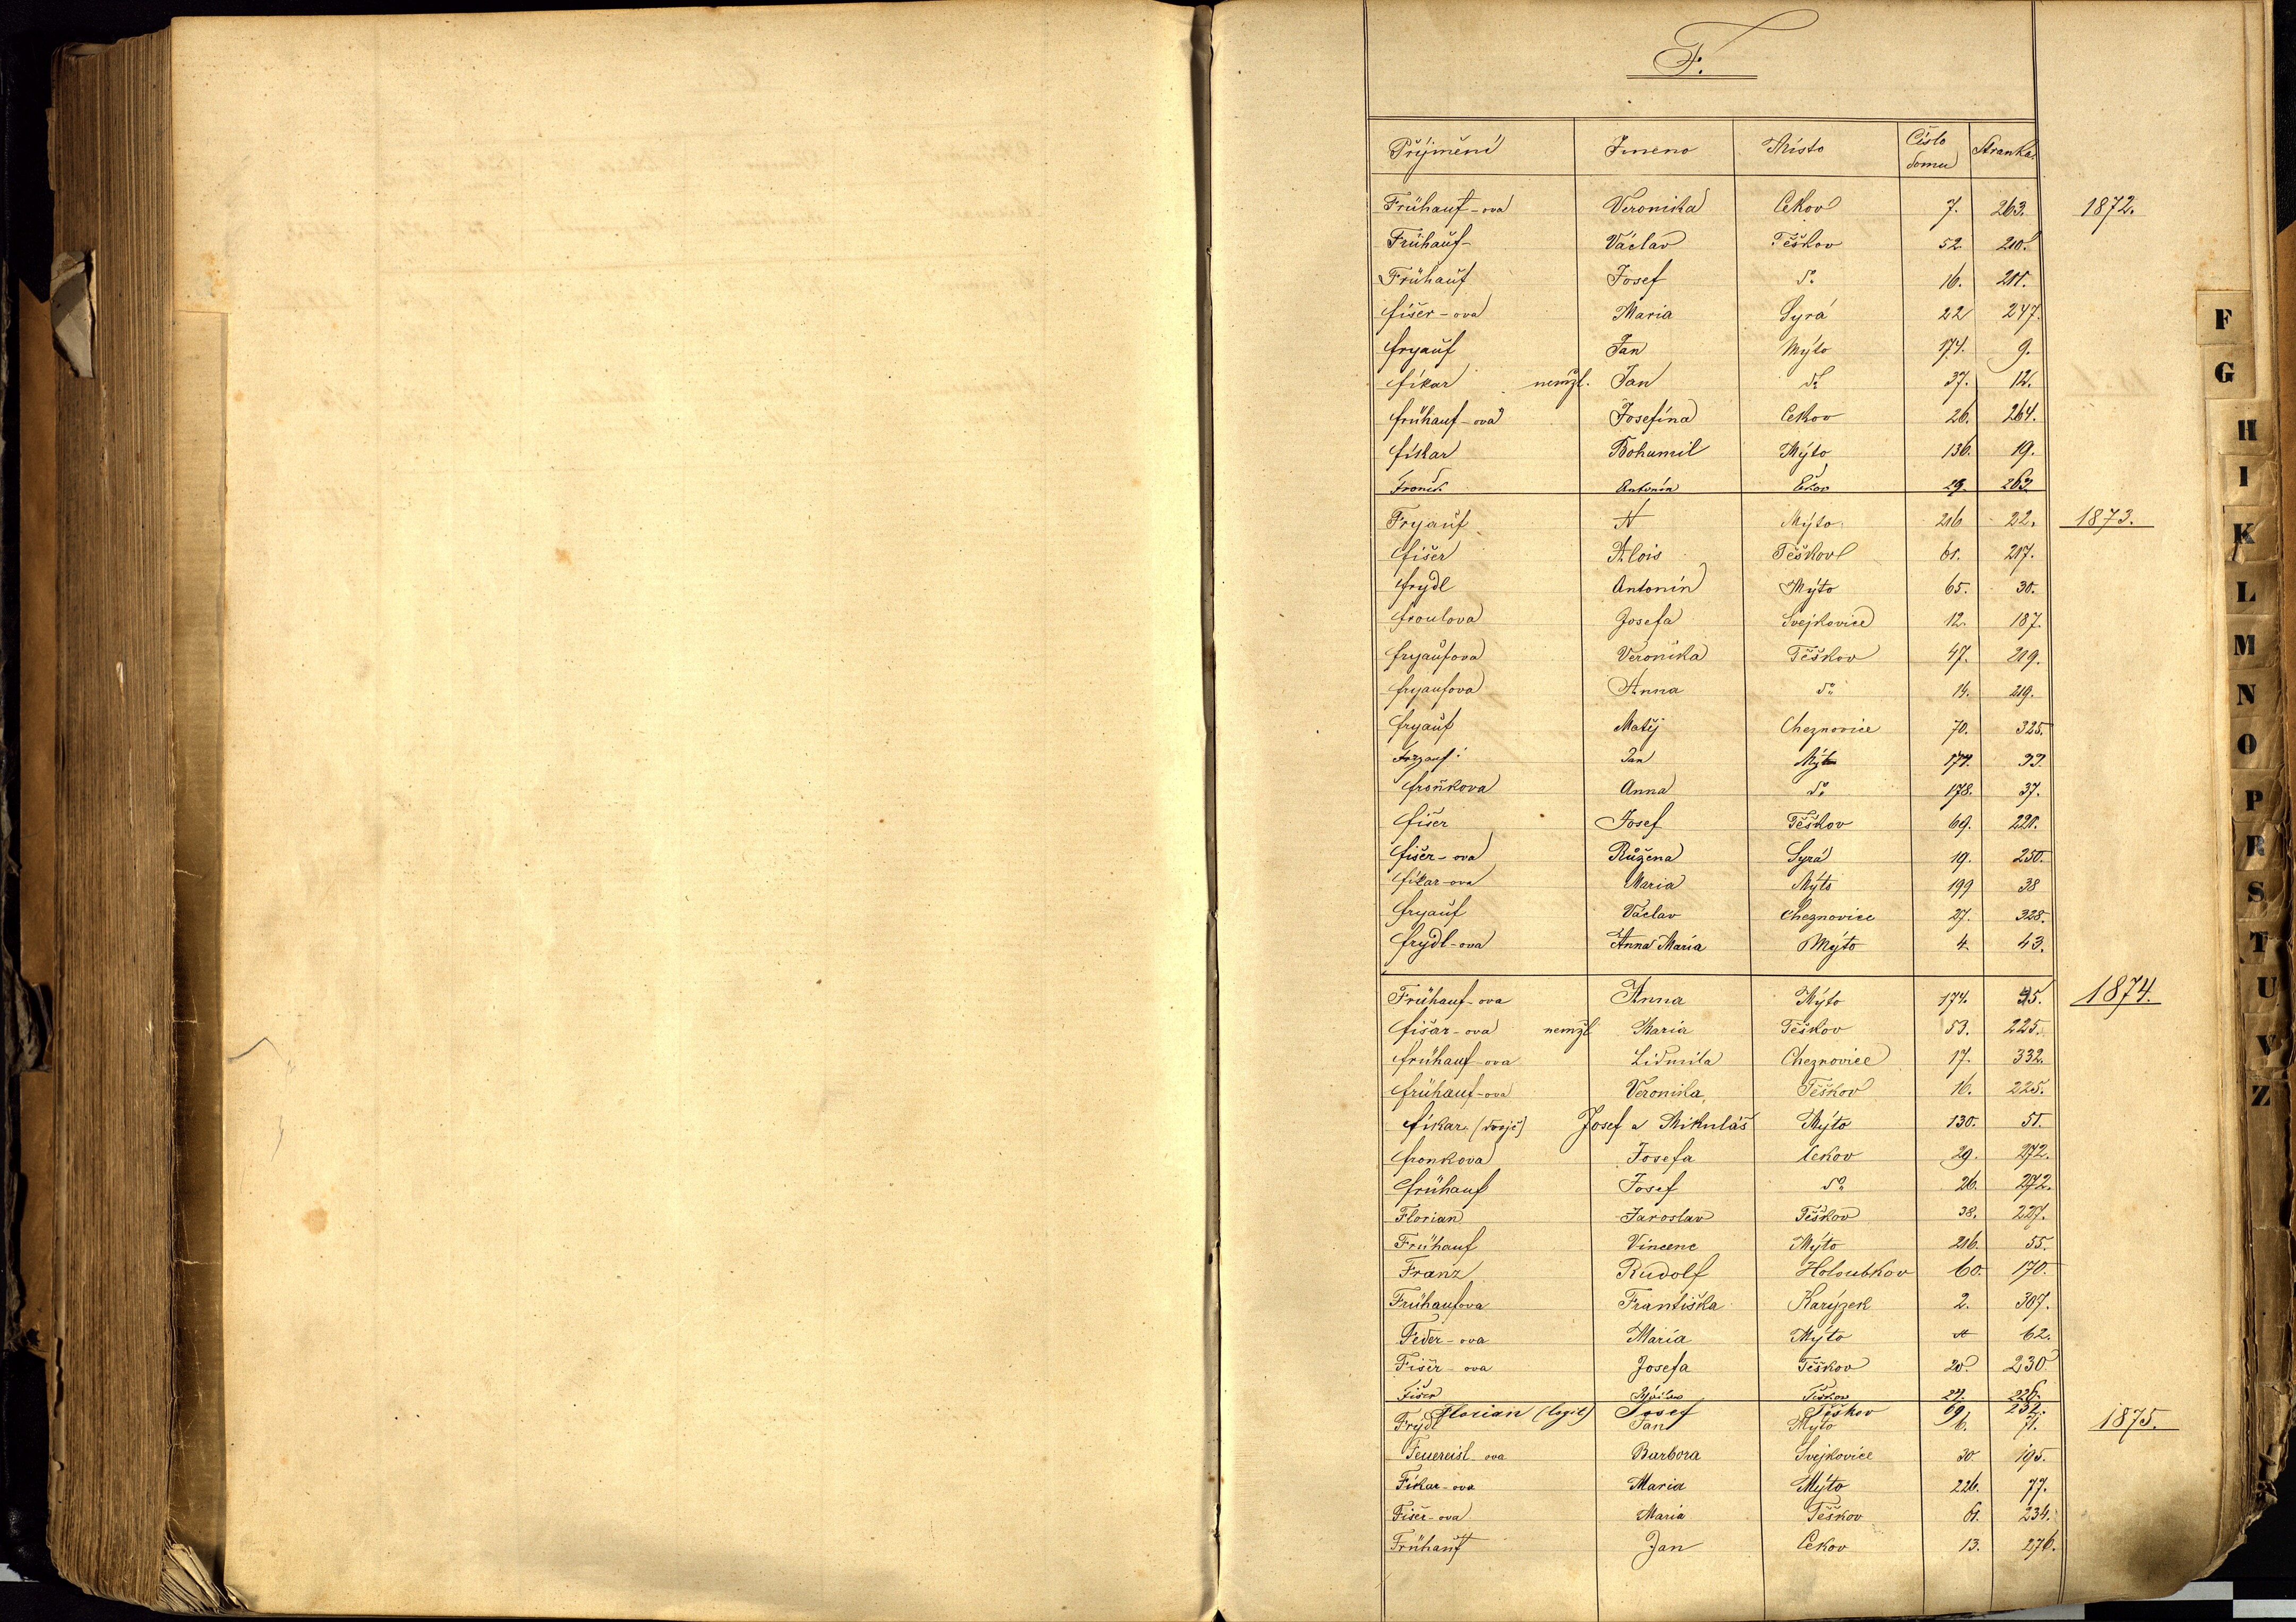 F.
Příjmení Jmeno Místo Číslo domu Stranka
Frühauf-ova Veronika Cekov 7. 263. 1872.
Frühauf- Václav Těškov 52. 210.
Frühauf Josef do 16. 211.
Fišer-ova Maria Syrá 22 247.
Fryauf Jan Mýto 174. 9.
Fikar nemžl. Jan do 37. 12.
Frühauf-ova Josefína Cekov 26. 264.
Fiskar Bohumil Mýto 136. 19.
Froněk Antonín Cekov 29. 263
Fryauf A Mýto 216 22. 1873.
Fišer Alois Těškov 61. 217.
Frydl Antonín Mýto 65. 30.
Froulova Josefa Svejkovice 12. 187.
Fryaufova Veronika Těškov 47. 219.
Fryaufova Anna do 14. 219.
Fryauf Matěj Cheznovice 70. 325.
Fryauf Jan Mýto 174. 33.
Froňkova Anna do 178. 37.
Fišer Josef Těškov 69. 220.
Fišer-ova Růžena Syrá 19. 250.
Fikar-ova Maria Mýto 199 38
Fryauf Václav Cheznovice 27. 328.
Frydl-ova Anna Maria Mýto 4. 43.
Frühauf-ova Anna Mýto 174. 45. 1874.
Fišar-ova nemžl Maria Těškov 53. 225.
Frühauf-ova Lidmila Cheznovice 17. 332.
Frühauf-ova Veronika, Těškov 16. 225.
Fikar (dvojč) Josef a Mikuláš Mýto 130. 51.
Fronkova Josefa Cekov 29. 272.
Frühauf Josef do 26. 272.
Florian Jaroslav Těškov 38. 227.
Frühauf Vincenc Mýto 216. 55.
Franz Rudolf Holoubkov 60. 170.
Frühaufova Františka Karýzek 2. 307.
Feder-ova Maria Mýto 62.
Fišer-ova Josefa Těškov 20. 230
Fišer Těškov 27. 226.
Florian (legit) Josef Těškov 69 232.
Frydl Jan Mýto 6. 71. 1875.
Feuereisl-ova Barbora Svejkovice 30 195.
Fikar-ova Maria Mýto 226. 77.
Fišer-ova Maria Těškov 61. 234.
Frühauf Jan Cekov 13. 276.
F
G
H
I
K
L
M
N
O
P
R
S
T
U
V
Z